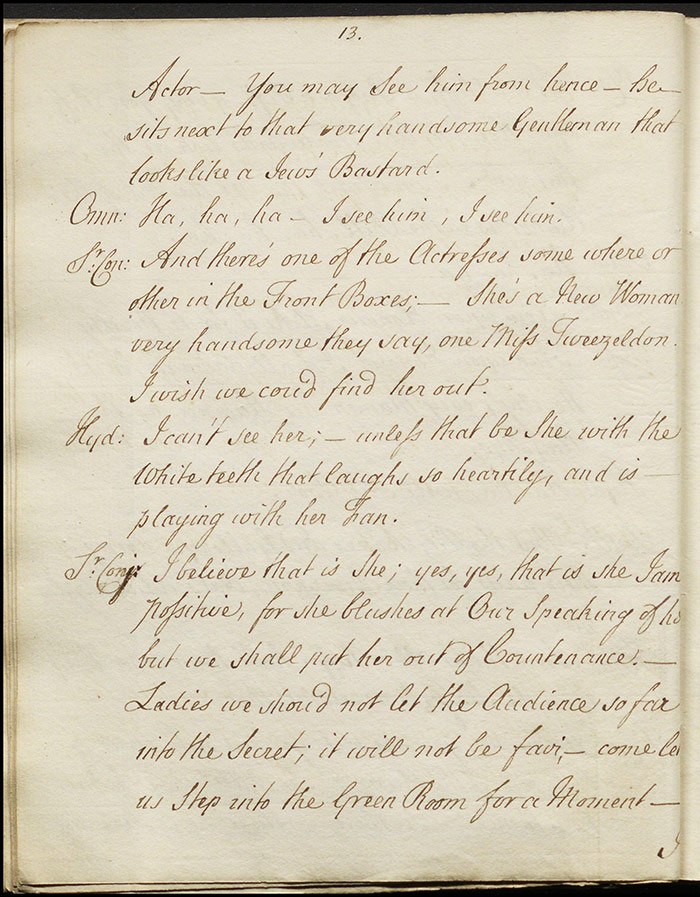 13.
Actor — You may See him from hence — he —
sits next to that very handsome Gentleman that
looks like a Jew's Bastard.
Omn: Ha, ha, ha — I see him, I see him.
Sr. Con: And there's one of the Actresses some where or
other in the Front Boxes; — She's a New Woman
very handsome they say, one Miss Tweezeldon.
I wish we cou'd find her out.
Hyd: I can't see her; — unless that be She with the
White teeth that laughs so heartily, and is —
playing with her Fan.
Sr. Conj: I believe that is She; yes, yes, that is she I am
possitive, for she blushes at Our Speaking of he
but we shall put her out of Countenance. —
Ladies we shou'd not let the Audience so far
into the Secret; it will not be fair, — come let
us Step into the Green Room for a Moment —